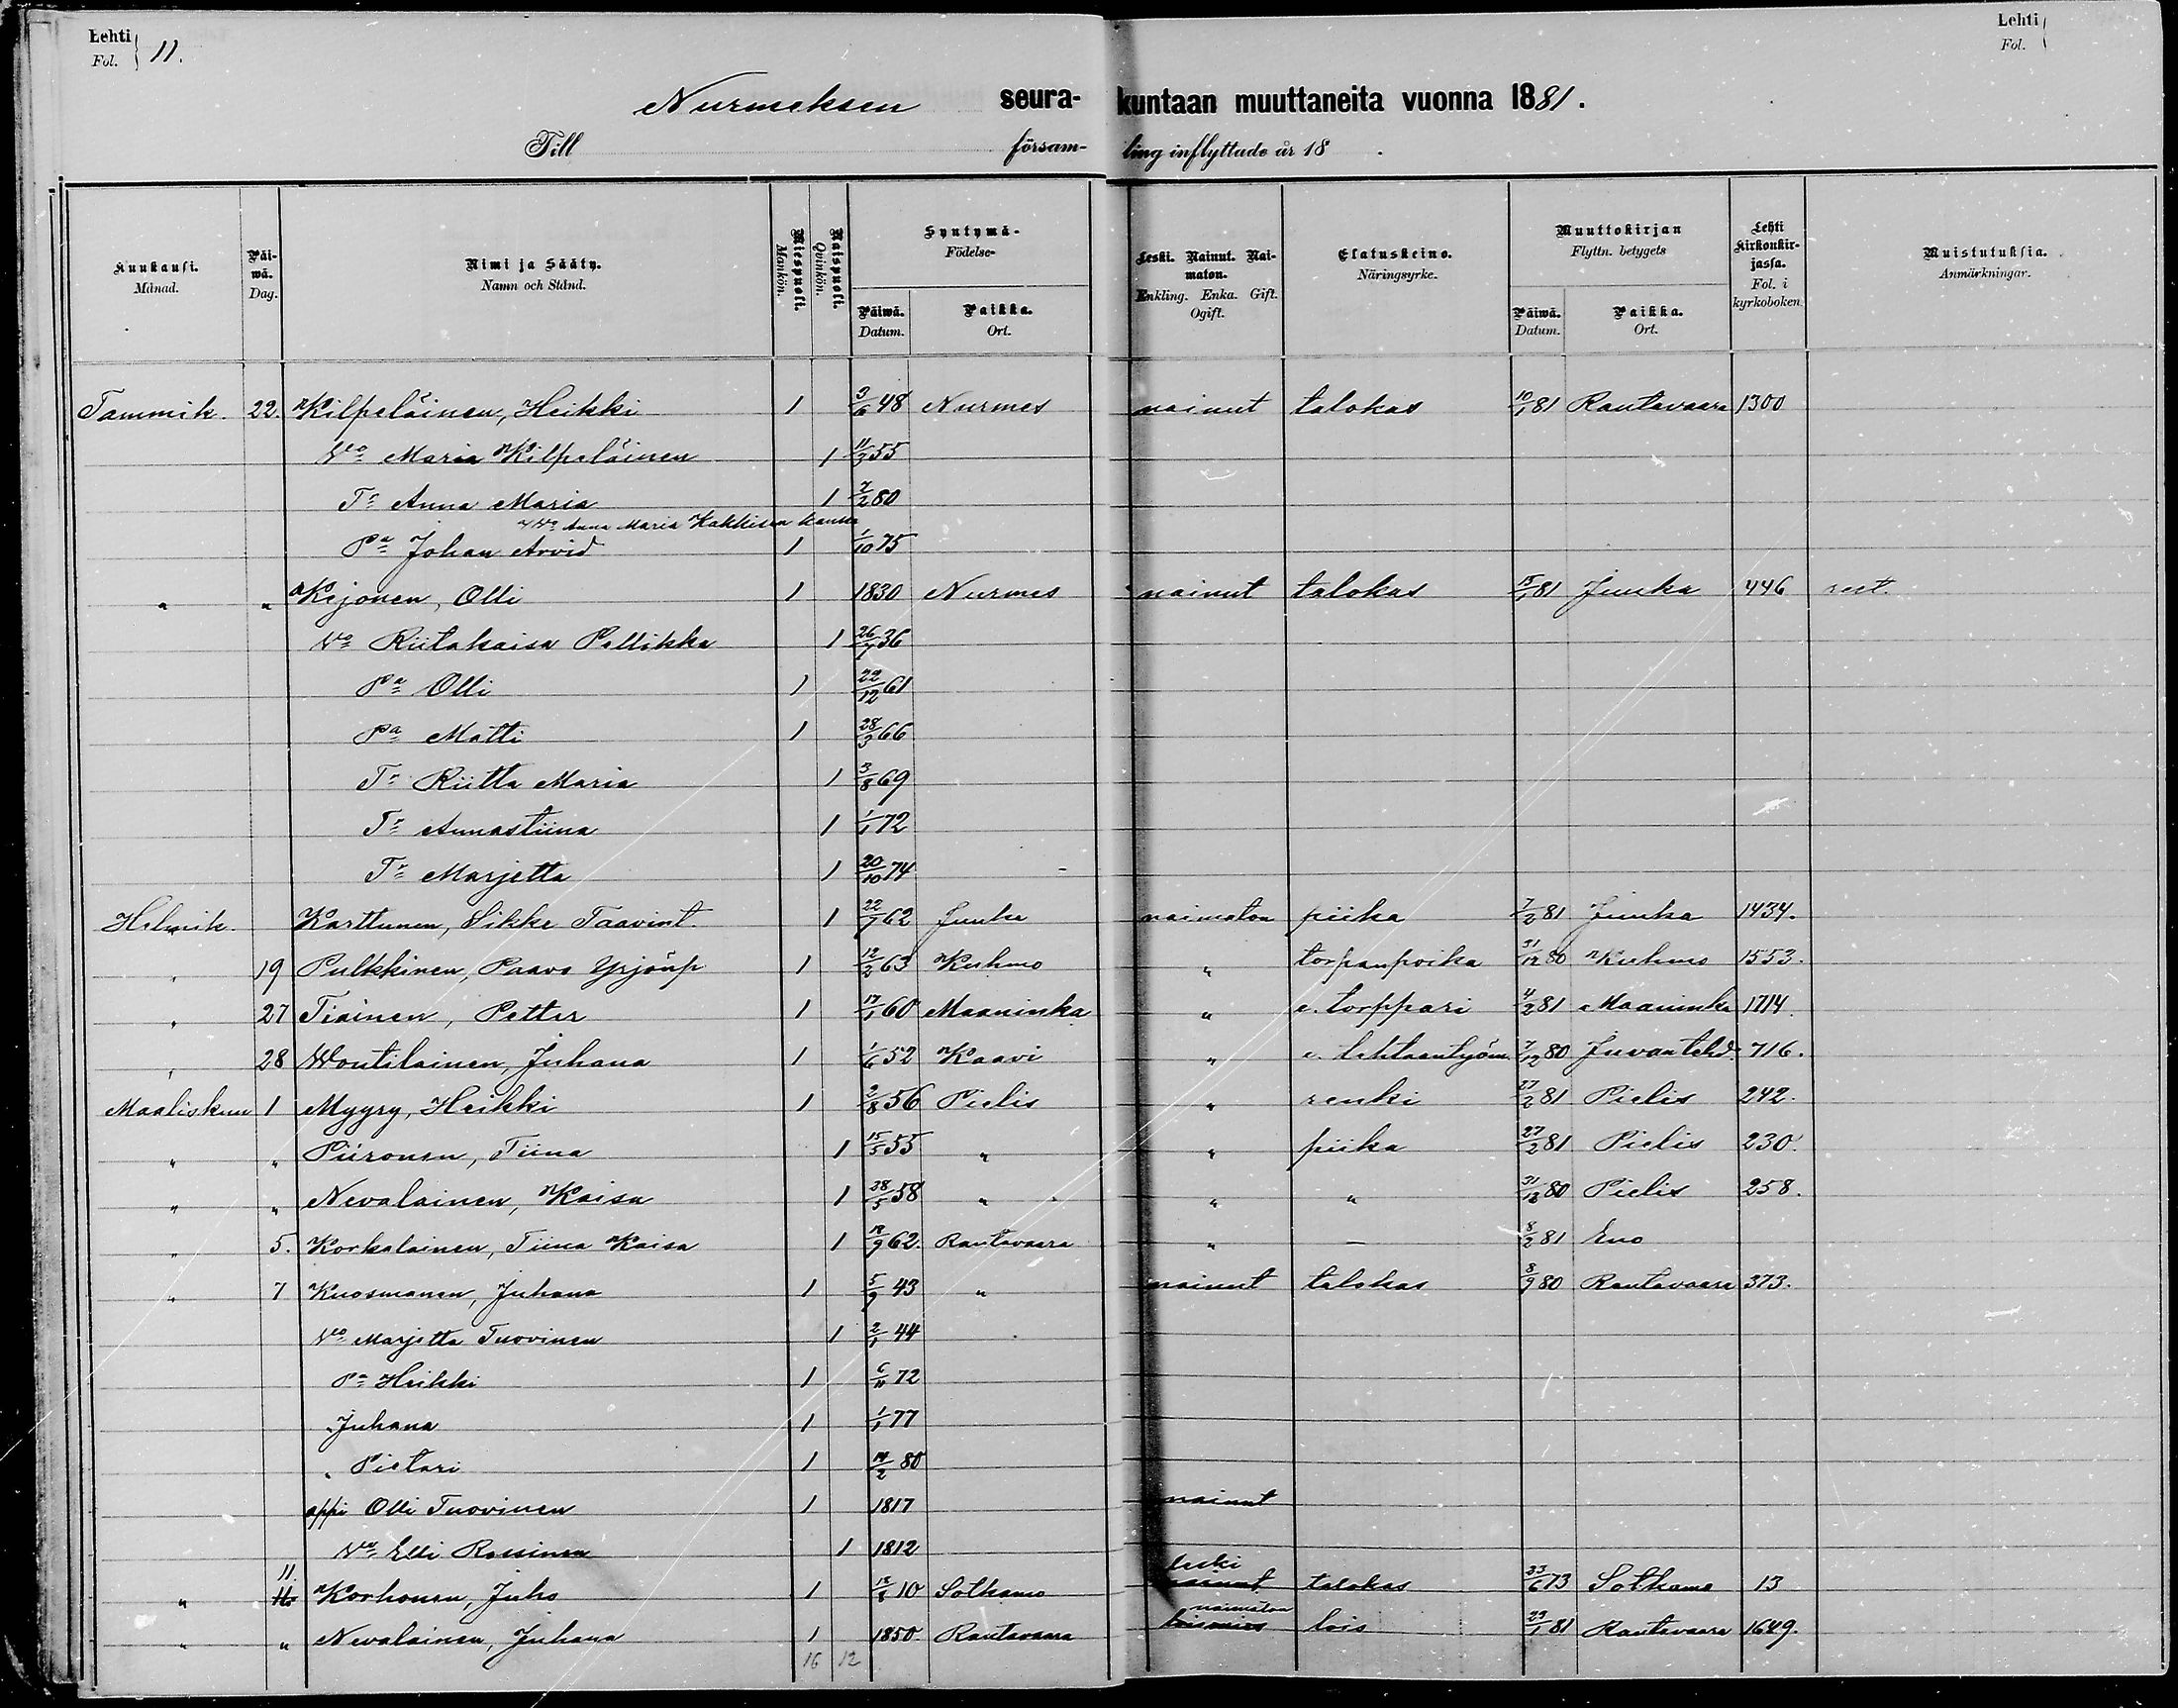 Lehti
Fol. 11.
Lehti
Fol.
Nurmeksen seura- kuntaan muuttaneita vuonna 1881.
Till försam- ling inflyttade år 18 .
Kuukausi. Månad.
Päi-wä. Dag.
Nimi ja Sääty. Namn och Stånd.
Miespuoli. Mankön.
Naispuoli. Qvinkön.
Syntymä- Födelse-
Päiwä. Datum.
Paikka. Ort.
Leski. Nainut. Nai-maton. Enkling. Enka. Gift. Ogift.
Elatuskeino. Näringsyrke.
Muuttokirjan Flyttn. betygets
Päiwä. Datum.
Paikka. Ort.
Lehti Kirkonkir-jassa. Fol. i kyrkoboken.
Muistutuksia. Anmärkningar.
Tammik. 22. Kilpeläinen, Heikki 1 3/6 48 Nurmes nainut talokas 10/1 81 Rautavaara 1300
Vo Maria Kilpeläinen 1 11/3 55
Tr Anna Maria 1 7/2 80
Vo Anna Maria Kakkisen kanssa
Pa Johan Arvid 1 1/10 75
" " Kejonen, Olli 1 1830 Nurmes nainut talokas 15/1 81 Juuka 446 rest.
Vo Riitakaisa Pellikka 1 26/7 36
Pa Olli 1 22/12 61
Pa Matti 1 28/3 66
Tr Riitta Maria 1 3/8 69
Tr Annastiina 1 1/1 72
Tr Marjetta 1 20/10 74
Helmik. Karttunen, Sikke Taavint. 1 22/7 62 Juuka naimaton piika 7/2 81 Juuka 1434.
" 19 Pulkkinen, Paavo Yrjönp 1 12/2 63 Kuhmo " torpanpoika 31/12 80 Kuhmo 1553.
" 27 Tiainen, Petter 1 17/1 60 Maaninka " e. torppari 4/2 81 Maaninka 1714.
" 28 Woutilainen, Juhana 1 1/6 52 Kaavi " e. tehtaantyöm. 7/12 80 Juvantehd. 716.
Maaliskuu 1 Mygry, Heikki 1 2/8 56 Pielis " renki 27/2 81 Pielis 242.
" " Piironen, Tiina 1 15/5 55 " " piika 27/2 81 Pielis 230.
" " Nevalainen, Kaisa 1 28/5 58 " " " 31/12 80 Pielis 258.
" 5. Korkalainen, Tiina Kaisa 1 18/9 62. Rautavaara " — 8/2 81 Eno
" 7 Kuosmanen, Juhana 1 5/9 43 " nainut talokas 8/9 80 Rautavaara 373.
Vo Marjetta Tuovinen 1 2/1 44
Pa Heikki 1 6/11 72
" Juhana 1 1/1 77
" Pietari 1 14/2 80
appi Olli Tuovinen 1 1817 nainut
Vo Elli Rossinen 1 1812
" 11. Korhonen, Juho 1 18/8 10 Sotkamo leski nainut talokas 23/6 73 Sotkamo 13
" " Nevalainen, Juhana 1 1850. Rautavaara naimaton lois 29/1 81 Rautavaara 1649.
16 12